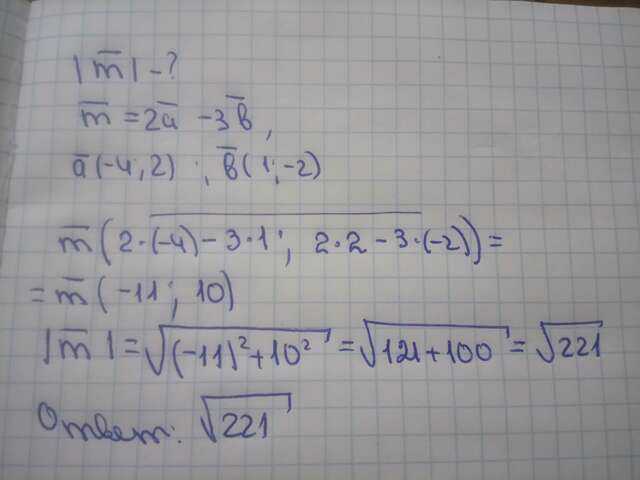 |m̅| - ?
m̅ = 2a̅ - 3b̅,
a̅(-4; 2) ; b̅(1; -2)
m̅(2·(-4)-3·1; 2·2-3·(-2)) =
= m̅(-11; 10)
|m̅| = √((-11)²+10²) = √(121+100) = √221
Ответ: √221